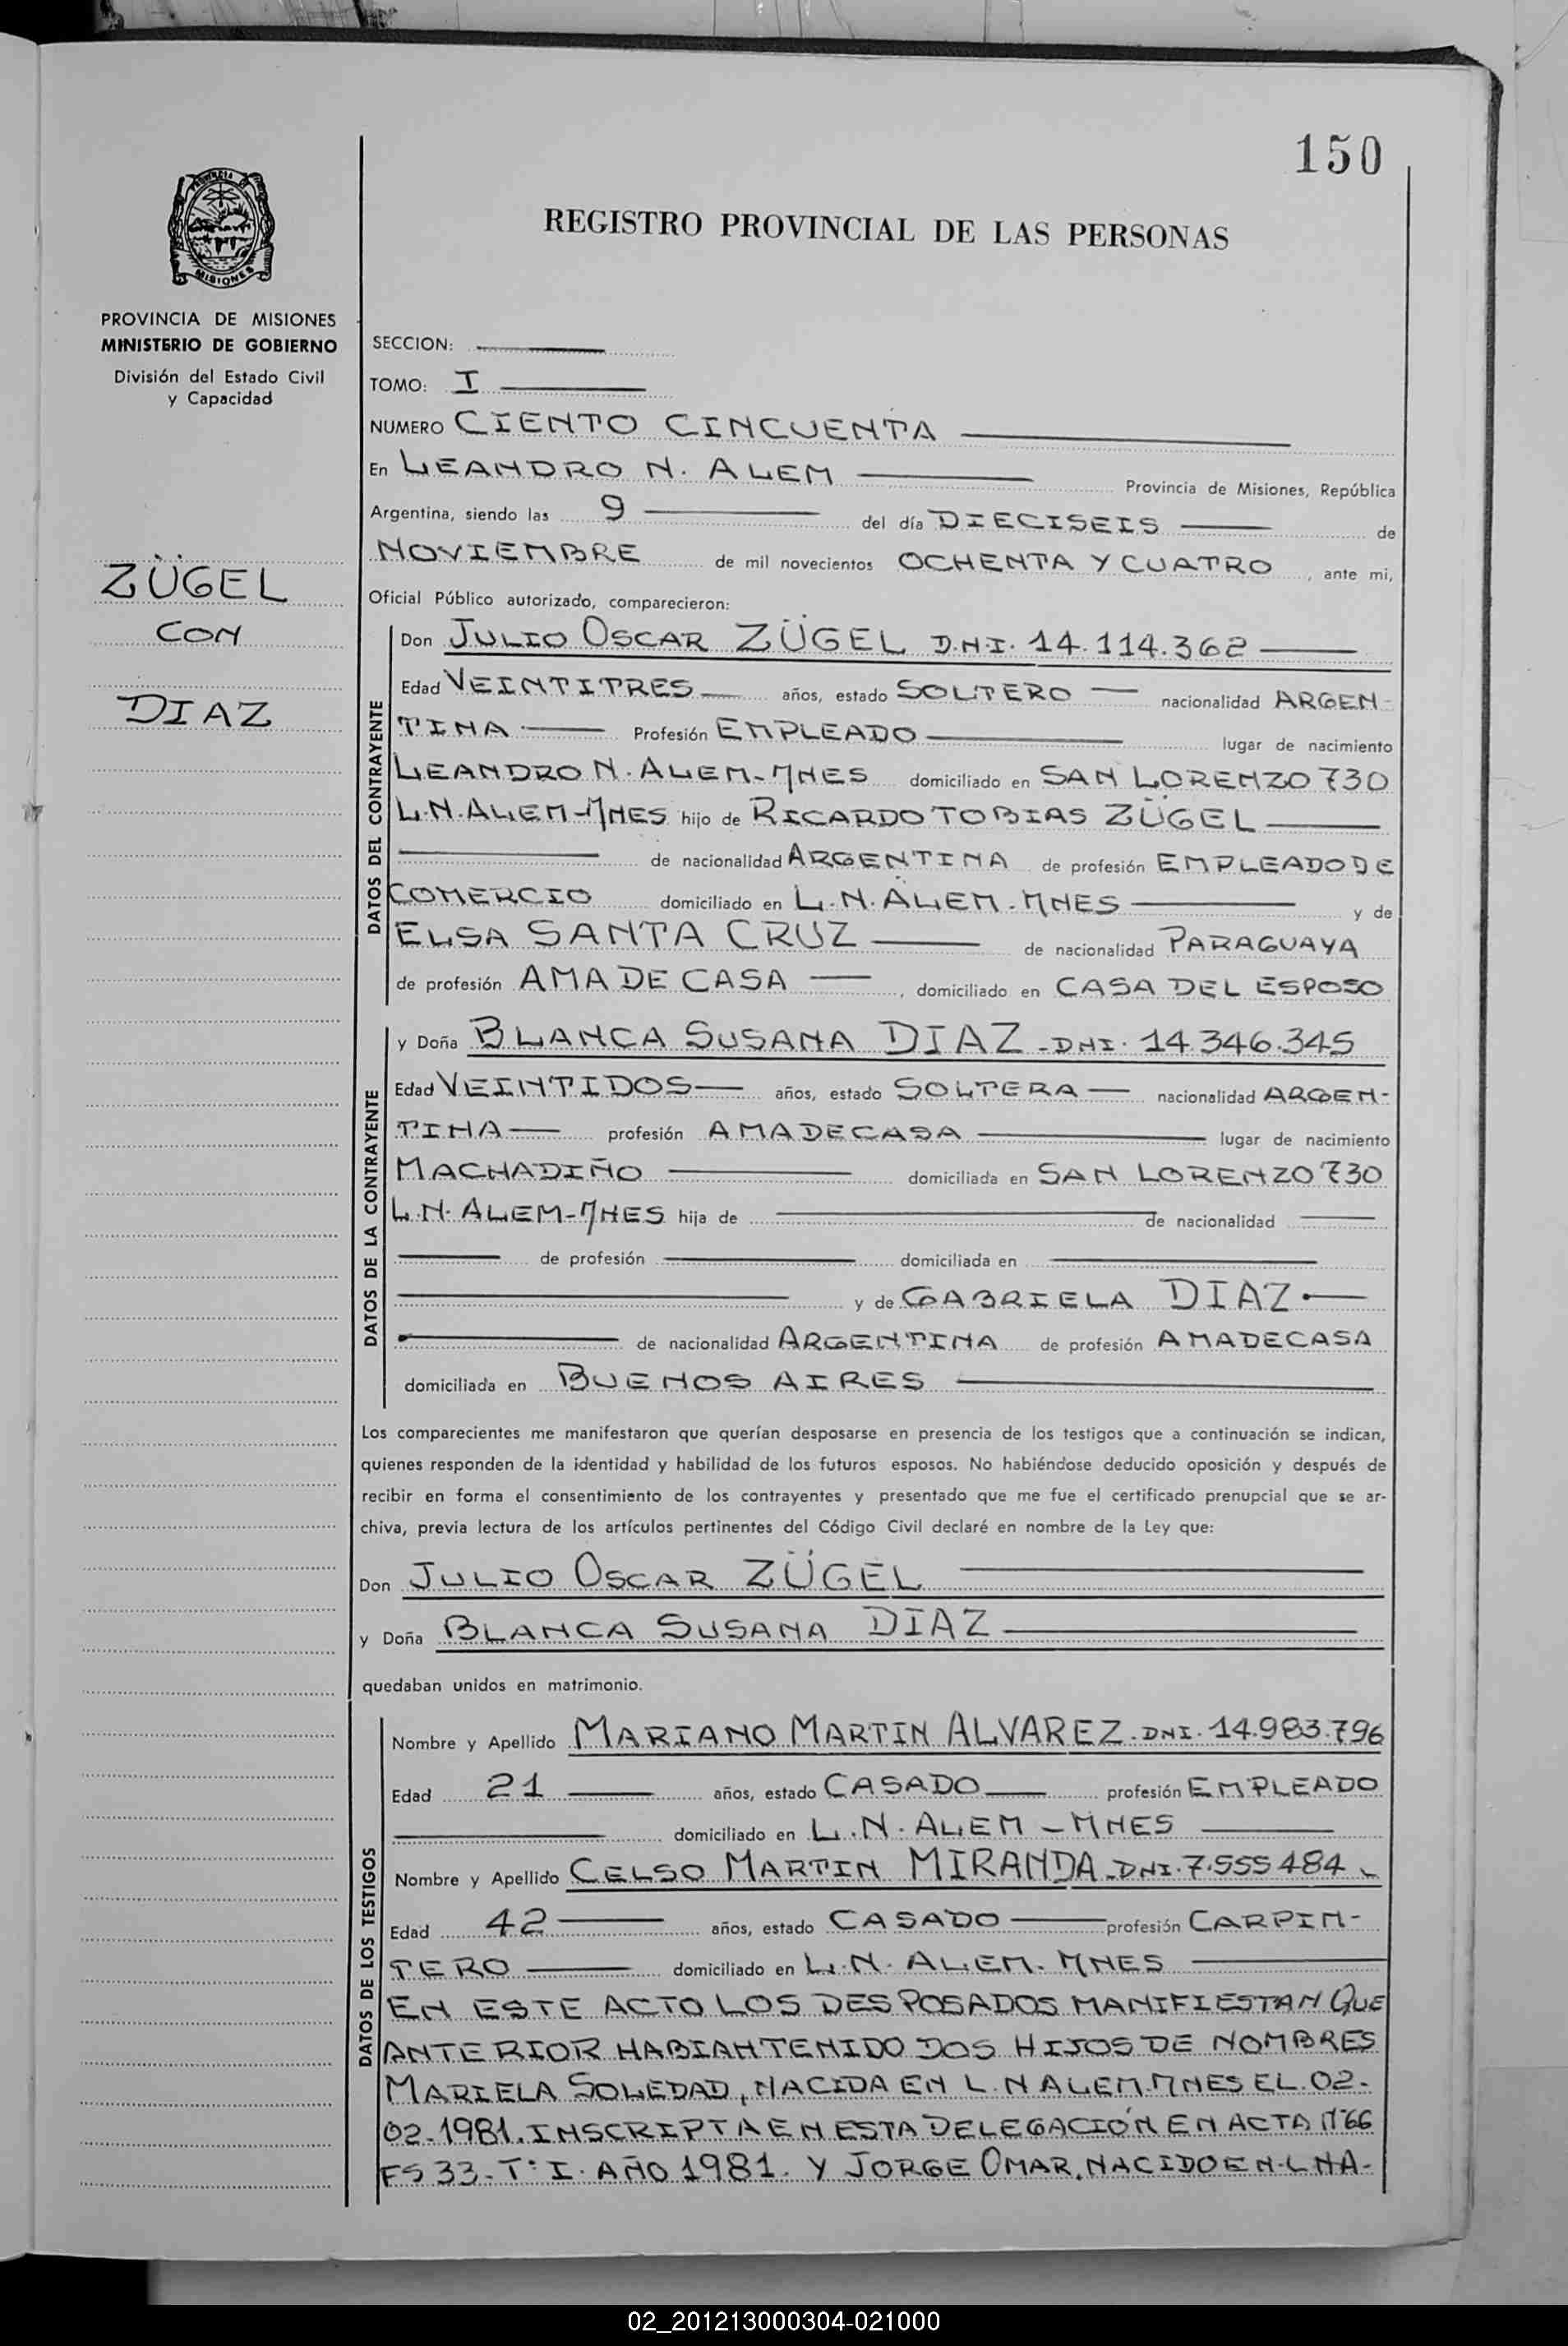 150
REGISTRO PROVINCIAL DE LAS PERSONAS
PROVINCIA
MISIONES
PROVINCIA DE MISIONES
MINISTERIO DE GOBIERNO
División del Estado Civil
y Capacidad
ZÜGEL
CON
DIAZ
SECCION:
TOMO: I
NUMERO CIENTO CINCUENTA
En LEANDRO N. ALEM Provincia de Misiones, República
Argentina, siendo las 9 del día DIECISEIS de
NOVIEMBRE de mil novecientos OCHENTA Y CUATRO, ante mi,
Oficial Público autorizado, comparecieron:
DATOS DEL CONTRAYENTE
Don JULIO OSCAR ZÜGEL D.N.I. 14.114.362
Edad VEINTITRES años, estado SOLTERO nacionalidad ARGEN-
TINA Profesión EMPLEADO lugar de nacimiento
LEANDRO N. ALEM-MNES domiciliado en SAN LORENZO 730
L.N.ALEM-MNES hijo de RICARDO TOBIAS ZÜGEL
de nacionalidad ARGENTINA de profesión EMPLEADO DE
COMERCIO domiciliado en L.N.ALEM-MNES y de
ELSA SANTA CRUZ de nacionalidad PARAGUAYA
de profesión AMA DE CASA, domiciliado en CASA DEL ESPOSO
DATOS DE LA CONTRAYENTE
y Doña BLANCA SUSANA DIAZ-DNI. 14.346.345
Edad VEINTIDOS años, estado SOLTERA nacionalidad ARGEN-
TINA profesión AMA DE CASA lugar de nacimiento
MACHADIÑO domiciliada en SAN LORENZO 730
L.N. ALEM-MNES hija de de nacionalidad
de profesión domiciliada en
y de GABRIELA DIAZ
de nacionalidad ARGENTINA de profesión AMA DE CASA
domiciliada en BUENOS AIRES
Los comparecientes me manifestaron que querían desposarse en presencia de los testigos que a continuación se indican,
quienes responden de la identidad y habilidad de los futuros esposos. No habiéndose deducido oposición y después de
recibir en forma el consentimiento de los contrayentes y presentado que me fue el certificado prenupcial que se ar-
chiva, previa lectura de los artículos pertinentes del Código Civil declaré en nombre de la Ley que:
Don JULIO OSCAR ZÜGEL
y Doña BLANCA SUSANA DIAZ
quedaban unidos en matrimonio.
DATOS DE LOS TESTIGOS
Nombre y Apellido MARIANO MARTIN ALVAREZ. DNI. 14.983.796
Edad 21 años, estado CASADO profesión EMPLEADO
domiciliado en L.N. ALEM-MNES
Nombre y Apellido CELSO MARTIN MIRANDA-DNI. 7.555484
Edad 42 años, estado CASADO profesión CARPIN-
TERO domiciliado en L.N. ALEM. MNES
EN ESTE ACTO LOS DESPOSADOS MANIFIESTAN QUE
ANTERIOR HABIAN TENIDO DOS HIJOS DE NOMBRES
MARIELA SOLEDAD, NACIDA EN L.N ALEM.MNES EL.02-
02-1981. INSCRIPTA EN ESTA DELEGACIÓN EN ACTA N°66
FS 33-T°I. AÑO 1981. Y JORGE OMAR, NACIDO EN-L NA-
02_201213000304-021000